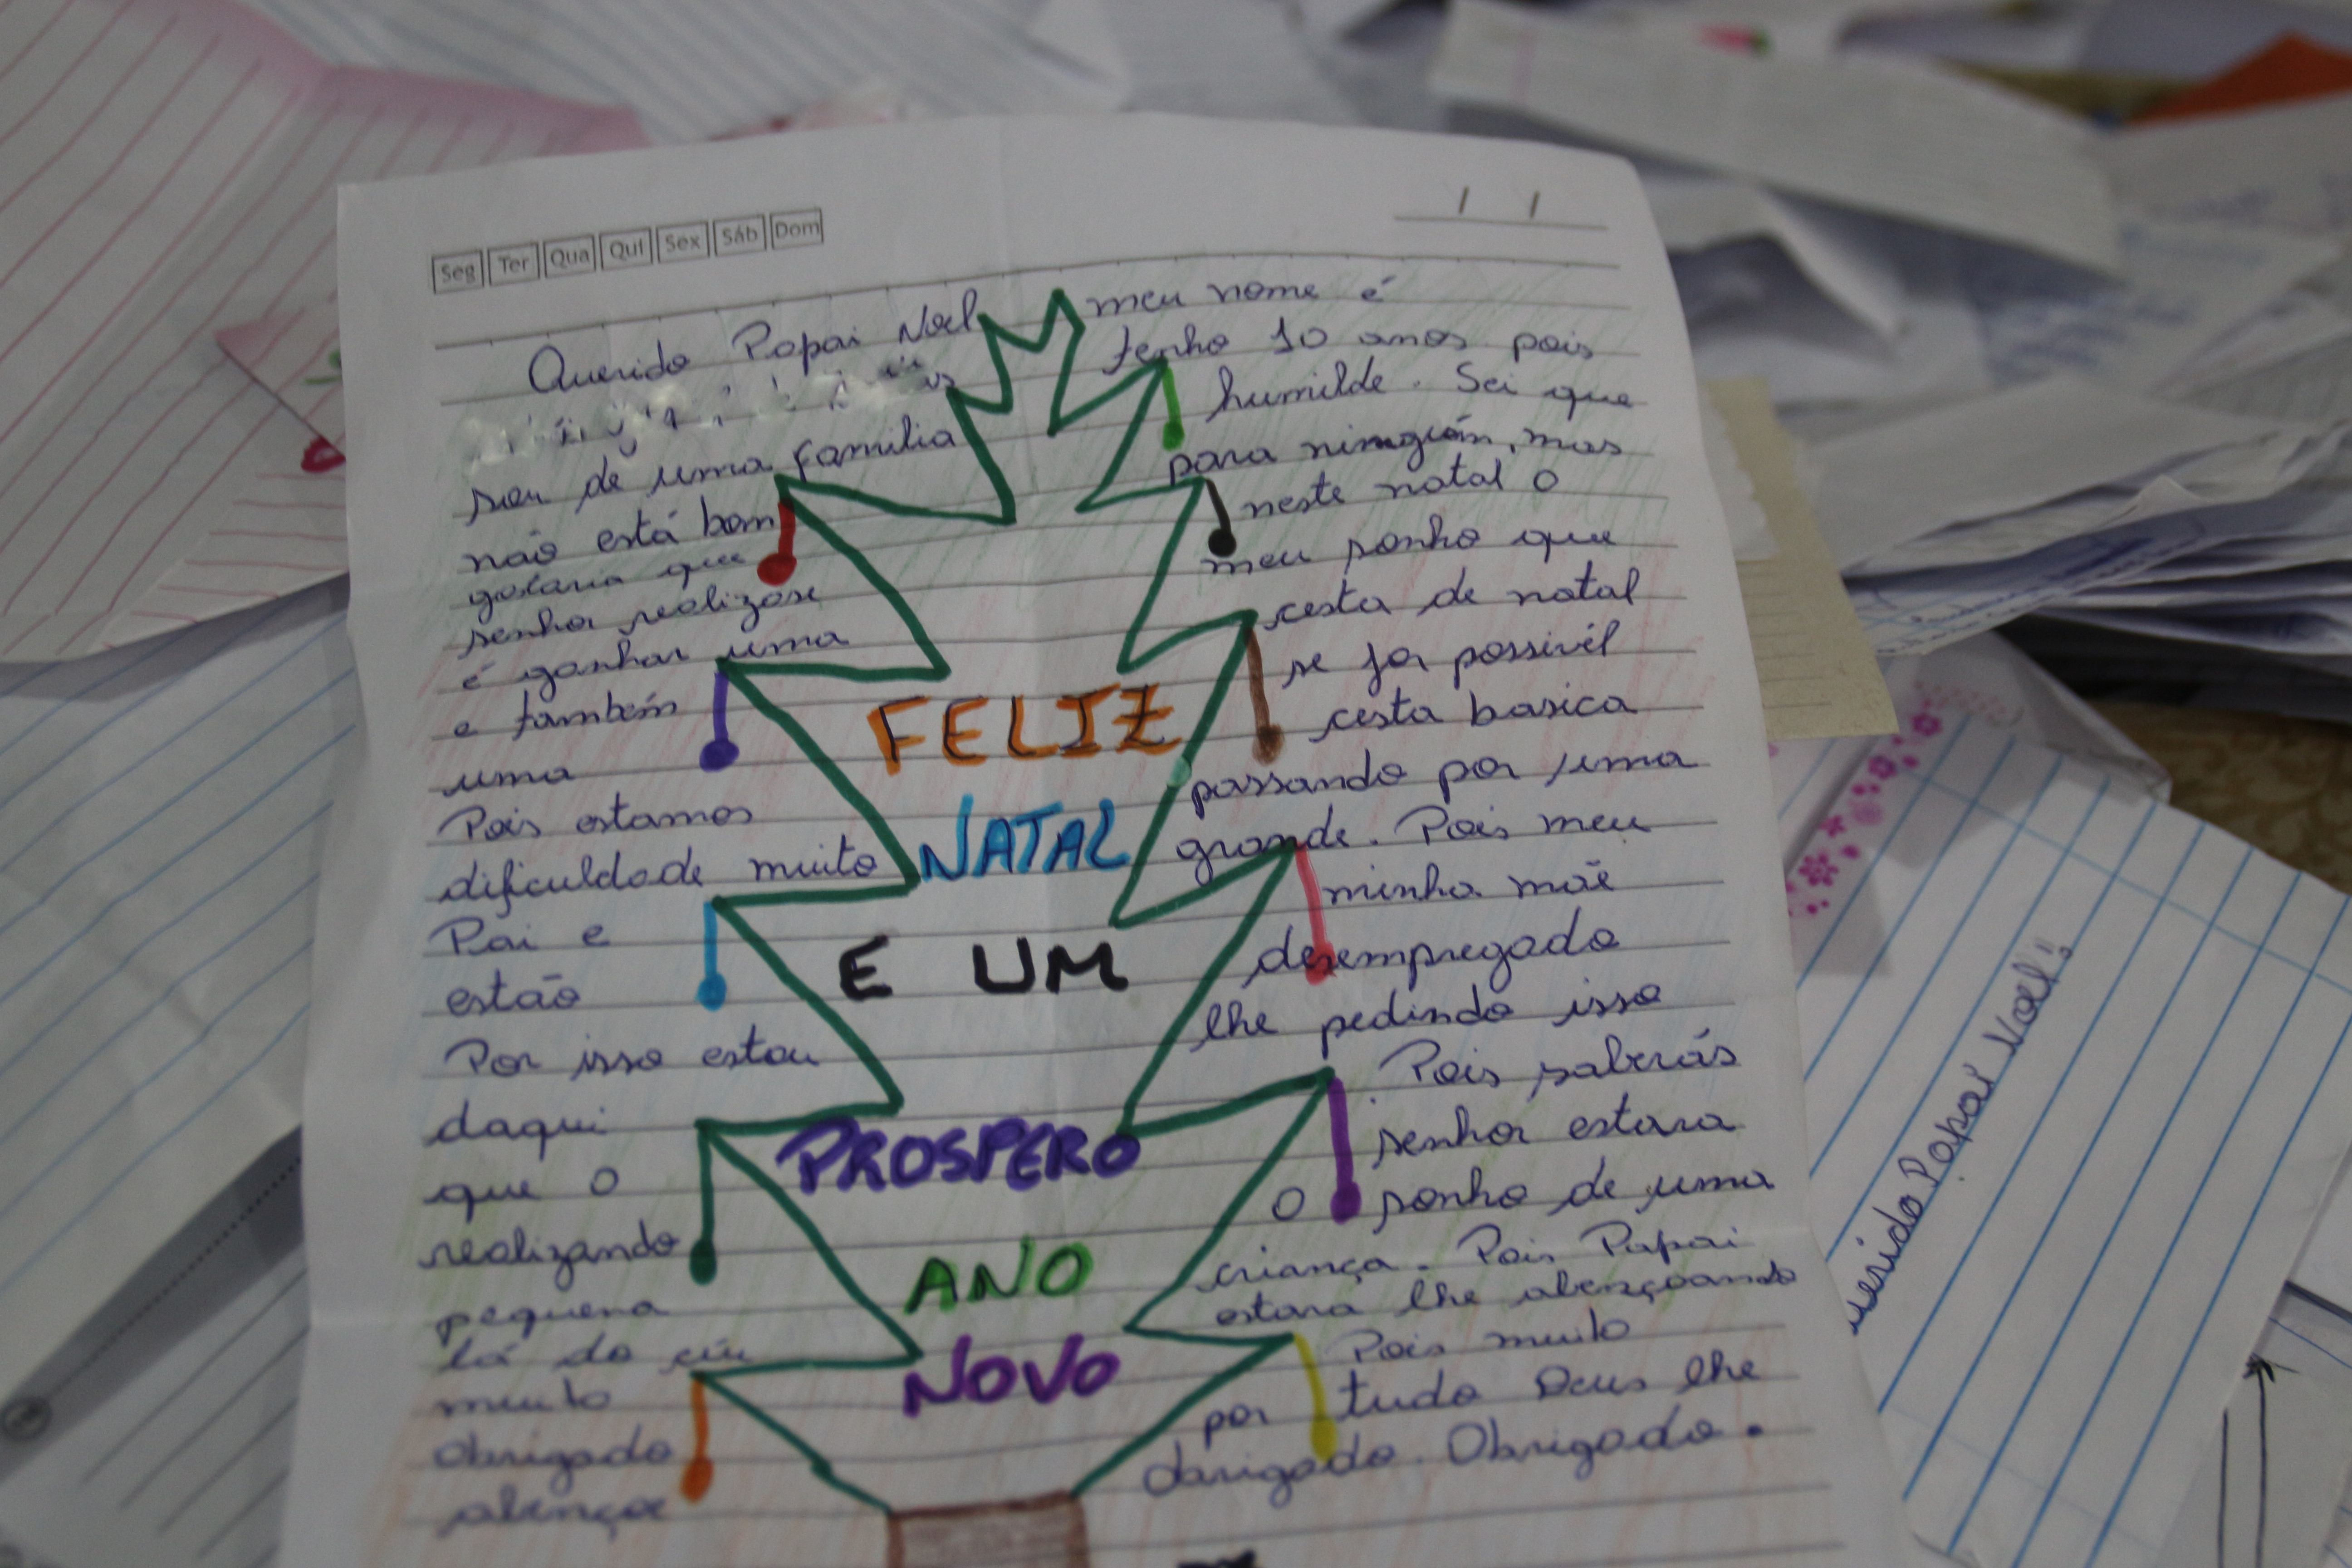 Seg Ter Qua Qui Sex Sáb Dom
/ /
Querido Papai Noel meu nome é
tenho 10 anos pois
sou de uma familia humilde. Sei que
não está bom para ninguém, mas
gostaria que neste natal o
senhor realizase meu sonho que
é ganhar uma cesta de natal
e também se for possivél
uma cesta basica
Pois estamos passando por uma
dificuldade muito grande. Pois meu
Pai e minha mãe
estão desempregado
Por isso estou lhe pedindo isso
daqui. Pois saberás
que o senhor estara
realizando o sonho de uma
pequena criança. Pois Papai
lá do céu estara lhe abençoando
muito Pois muito
Obrigado por tudo Deus lhe
abençoe obrigado. Obrigado.
FELIZ
NATAL
E UM
PROSPERO
ANO
NOVO
Papai Noel!!